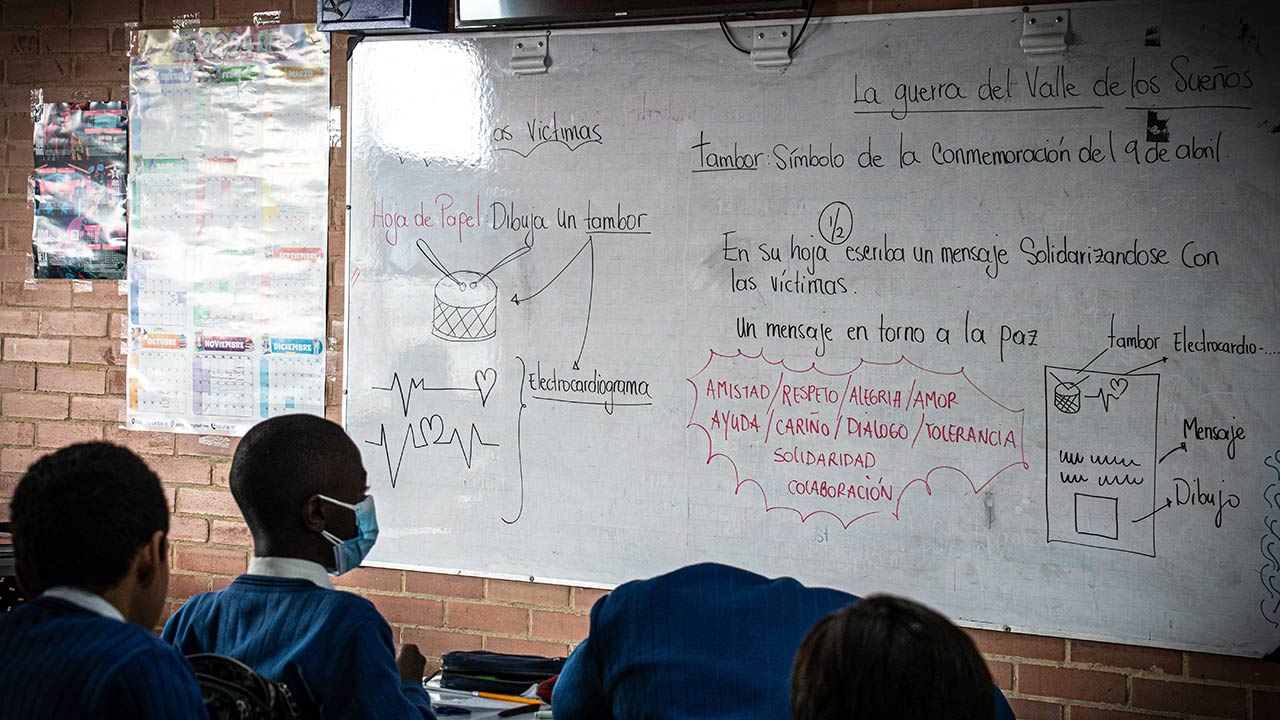 ENERO FEBRERO MARZO
SEPTIEMBRE
OCTUBRE NOVIEMBRE DICIEMBRE
Víctimas
Hoja de Papel Dibuja un tambor
Electrocardiograma
La guerra del Valle de los Sueños
tambor: Símbolo de la Conmemoración del 9 de abril.
1/2
En su hoja escriba un mensaje Solidarizandose Con
las víctimas.
Un mensaje en torno a la paz
AMISTAD/RESPETO/ALEGRIA/AMOR
AYUDA/CARIÑO/DIALOGO/TOLERANCIA
SOLIDARIDAD
COLABORACIÓN
tambor Electrocardio-....
Mensaje
Dibujo